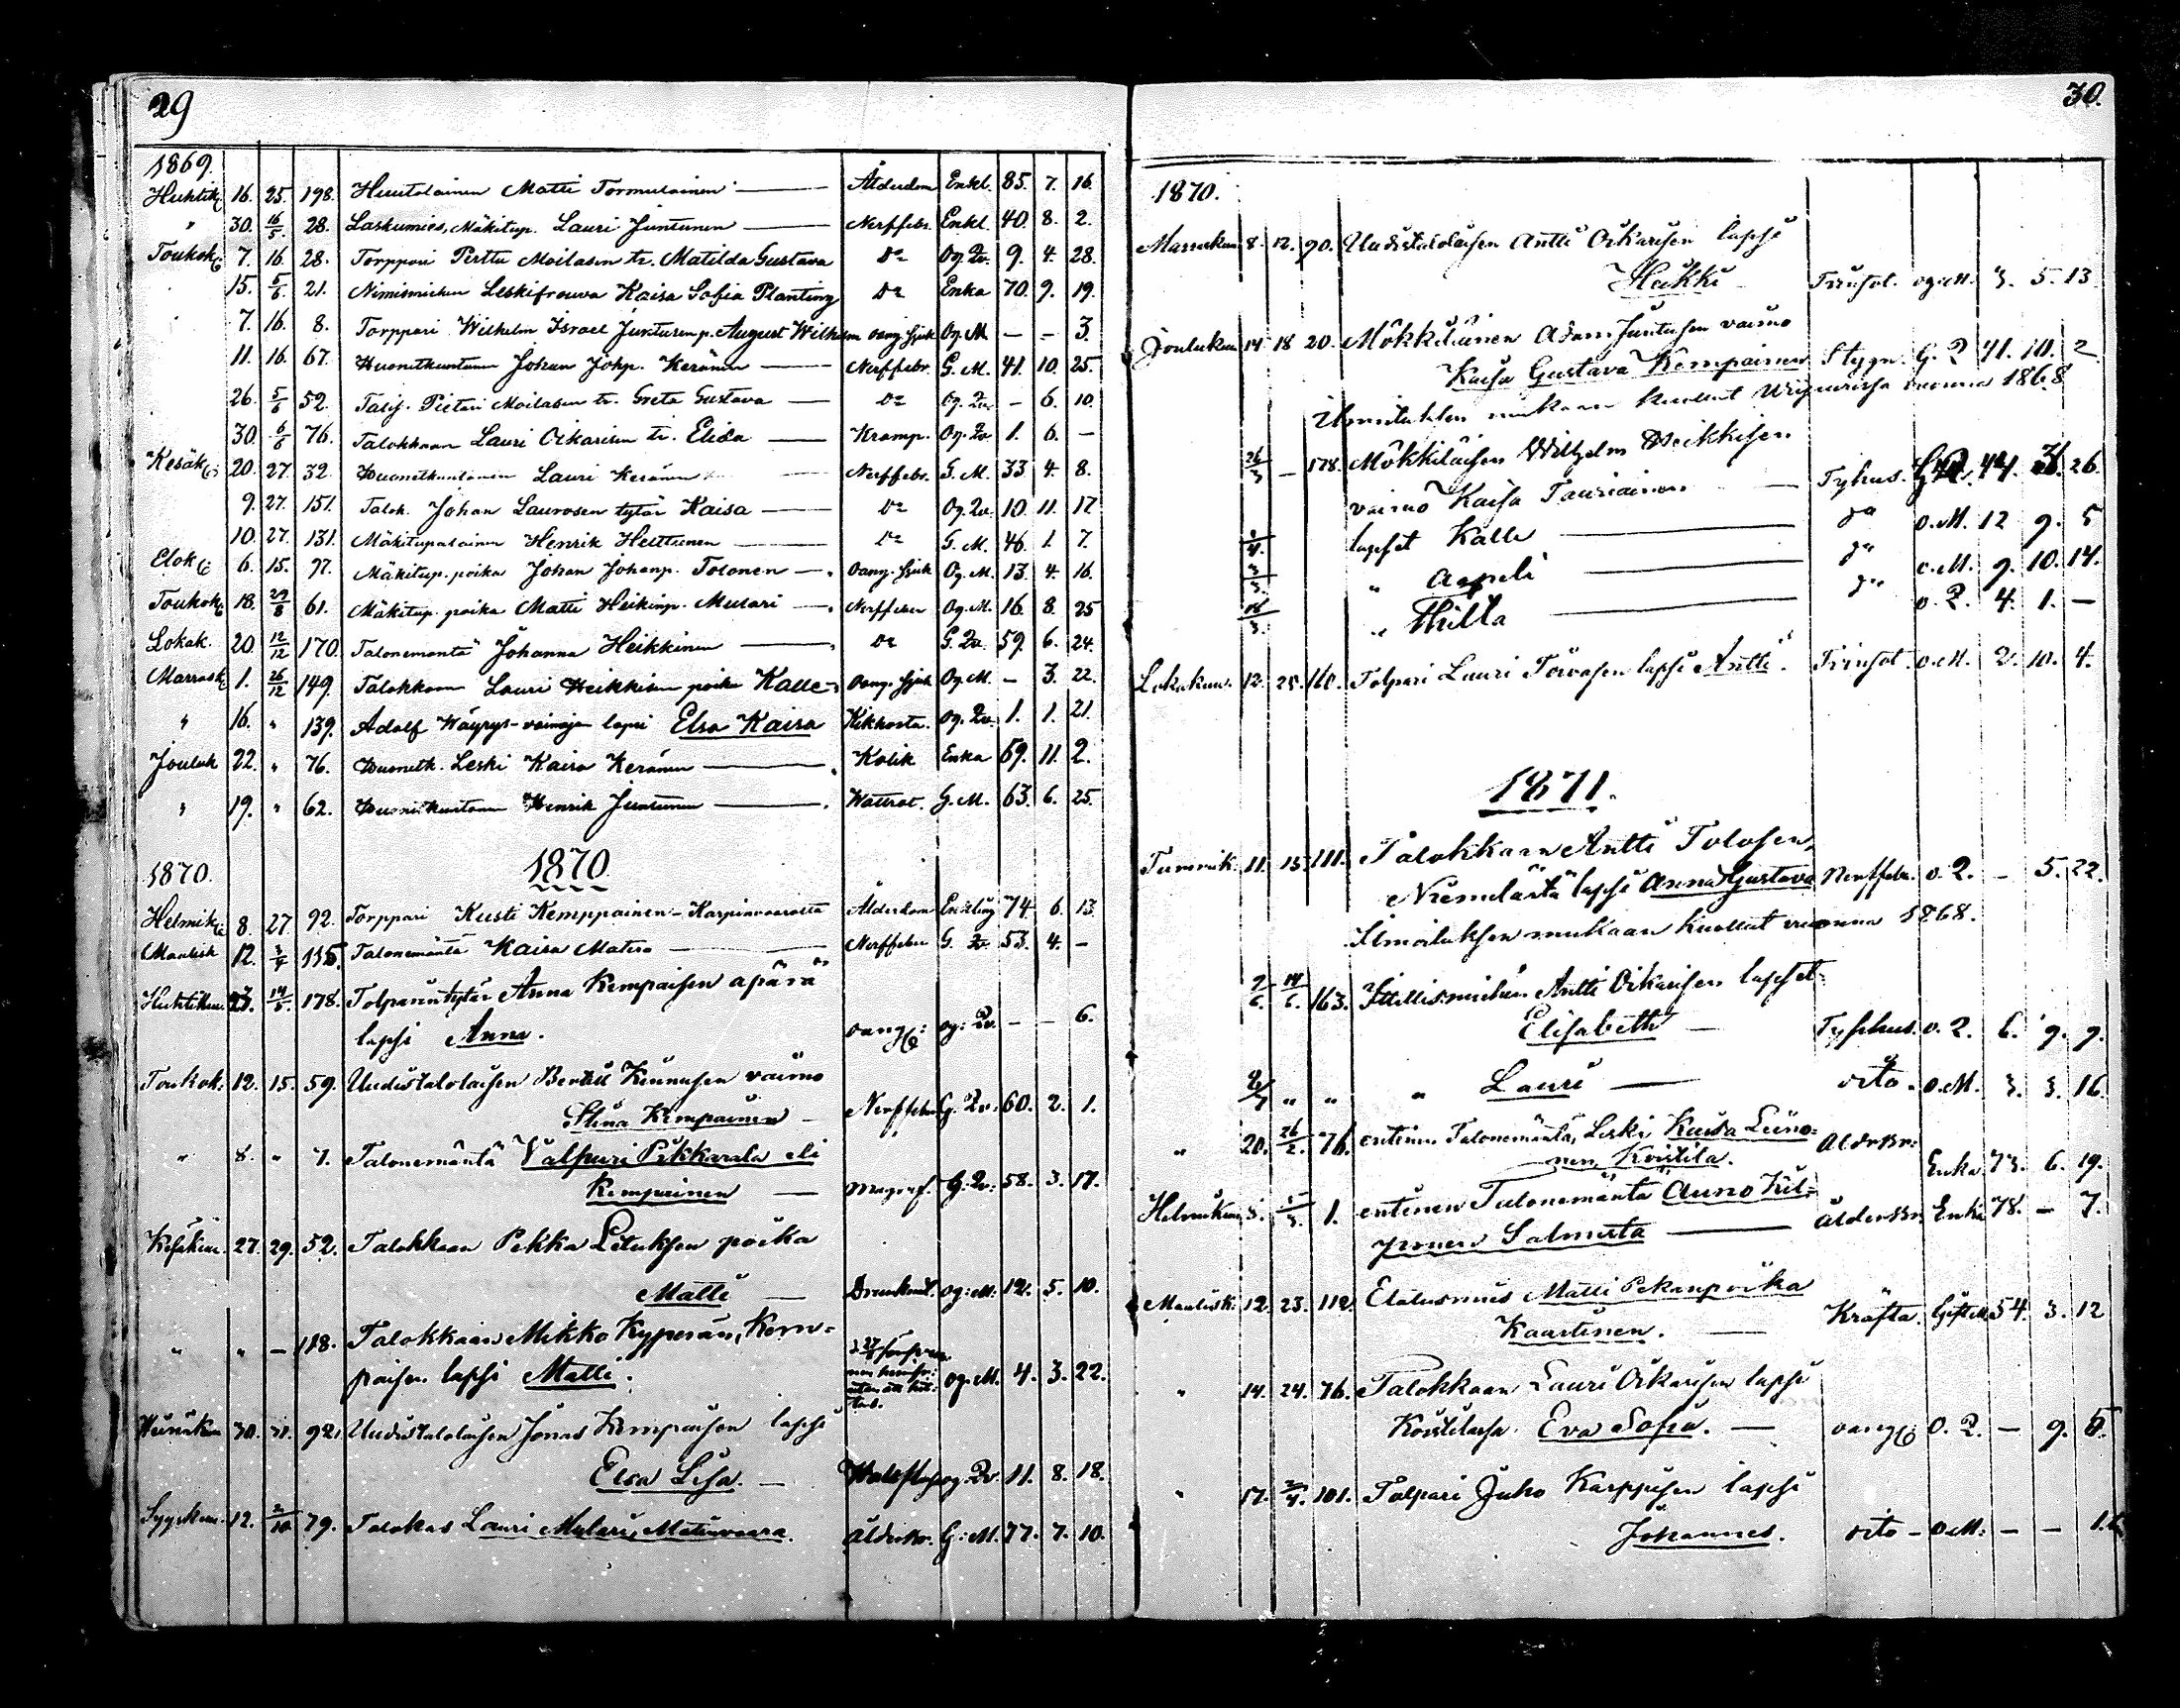 29
1869.
Huhtik. 16. 25. 198. Huutolainen Matti Tormulainen — Ålderdom Enkl. 85. 7. 16.
" 30. 16/5. 28. Laskumies, Mäkitup. Lauri Juntunen — Nerffeber. Enkl. 40. 8. 2.
Toukok. 7. 16. 28. Torppari Perttu Moilasen tr. Matilda Gustava Do Og. Qv. 9. 4. 28.
15. 5/6. 21. Nimismiehen Leskifrouva Kaisa Sofia Planting Do Enka 70. 9. 19.
7. 16. 8. Torppari Wilhelm Israel Juntusen p. August Wilhelm oang. sjuk Og. M. — – 3.
11. 16. 67. Huonetkuntanen Johan Johp. Keränen — Nerffeber. G. M. 41. 10. 25.
26. 5/6 52. Talij. Pietari Moilasen tr. Greta Gustava — Do Og. Qv. – 6. 10.
30. 6/6 76. Talokkaan Lauri Oikarisen tr. Elisa — Kramp. Og. Qv. 1. 6. –
Kesäk. 20. 27. 32. Huonetkuntanen Lauri Keränen — Nerffebr. G. M. 33. 4. 8.
9. 27. 151. Talok. Johan Laurosen tytär Kaisa — Do Og. Qv. 10. 11. 17
10. 27. 131. Mäkitupalainen Henrik Helttunen — Do G. M. 46. 1. 7.
Elok. 6. 15. 97. Mäkitup. poika Johan Johanp. Tolonen — oang. sjuk Og. M. 13. 4. 16.
Toukok. 18. 29/8 61. Mäkitup. poika Matti Heikinp. Mulari — Nerffeber Og. M. 16. 8. 25
Lokak. 20. 12/12 170. Talonemäntä Johanna Heikkinen — Do G. Qv. 59. 6. 24.
Marrask. 1. 26/12 149. Talokkaan Lauri Heikkisen poika Kalle – oang. sjuk Og. M. – 3. 22.
" 16. " 139. Adolf Wäyrys-vainajan lapsi Elsa Kaisa Kikhosta. Og. Qv. 1. 1. 21.
Jouluk 22. " 76. Huonetk. Leski Kaisa Keränen — Kolik Enka 69. 11. 2.
" 19. " 62. Huonetkuntanen Henrik Juntunen — Wattsot. G. M. 63. 6. 25.
1870. 1870.
Helmik. 8. 27. 92. Torppari Kusti Kemppainen – Karpinvaarasta Ålderdom Enkling 74. 6. 13.
Maalisk 12. 3/4 115. Talonemäntä Kaisa Matero — Nerffeber G. Qv. 53. 4. –
Huhtikuu 14/5. 178. Tolparintytär Anna Kempaisen äpärä
lapsi Anna. oang. og: Qv. – – 6.
Toukok. 12. 15. 59. Uudistalolaisen Bertil Kinnusen vaimo
Stina Kempainen – Nerffeber G. Qv. 60. 2. 1.
" 8. " 7. Talonemäntä Valpuri Pikkarala eli
Kempainen — G. Qv: 58. 3. 17.
Kesäkuu. 27. 29. 52. Talokkaan Pekka Leinksen poika
Matti — Drunknat. og: M. 12. 5. 10.
" " – 118. Talokkaan Mikko Kyperän, Kem-
paisen lapsi Matti. og. M. 4. 3. 22.
Heinäkuu 30. 31. 92. Uudistalolaisen Jonas Kempaisen lapsi
Elsa Lisa. — og. Qv. 11. 8. 18.
Syyskuu. 12. 2/10 79. Talokas Lauri Mulari, Matinvaara. Ålderdr. G: M. 77. 7. 10.
30.
1870.
Marraskuu 8. 12. 90. Uudistalolaisen Antti Oikarisen lapsi
Heikki Trinsot. og: M. 3. 5. 13
Joulukuu 14 18 20. Mökkiläinen Adam Juntusen vaimo
Kaisa Gustava Kempainen Stygn. G. Q 41. 10. 2
Ilmoituksen mukaan kuollut vuonna 1868
26/3 – 178. Mökkiläisen Wilhelm Heikkisen
vaimo Kaisa Tauriainen — Typhus. 26.
lapset Kalle — do o. M. 12 9. 5
" Aapeli — do o. M. 9. 10. 14.
" Thilta — do o. Q. 4. 1. –
Lokakuu. 12. 25. 160. Tolpari Lauri Törvasen lapsi Antti. Trinsot. o. M. 2. 10. 4.
1871.
Tammik: 11. 15. 111. Talokkaan Antti Tolosen,
Niemelästä lapsi Anna Gustava Nervfeber. o. Q. – 5. 22.
Ilmoituksen mukaan kuollut vuonna 1868.
14/6. 163. Itellismiehen Antti Oikarisen lapset
Elisabeth — Typhus. o. Q. 6. 9. 9.
" " " Lauri — dito. o. M. 3. 3. 16.
" 20. 26/2. 76. entinen Talonemäntä, Leski Kaisa Leino-
nen, Koistila. Enka 73. 6. 19.
Helmikuu 5. 1. entinen Talonemäntä Auno Kil-
punen Salmesta — Ålderdr. Enka 78. – 7.
Maalisk: 12. 23. 112. Elatusmies Matti Pekanpoika
Kaartinen. — Kräfta. Gift M. 54. 3. 12
" 14. 24. 76. Talokkaan Lauri Oikarisen lapsi
Koistilassa. Eva Sofia. — oang. o. Q. – 9. 5.
" 17. 2/4. 101. Tolpari Juho Karppisen lapsi
Johannes. dito – o M: – –